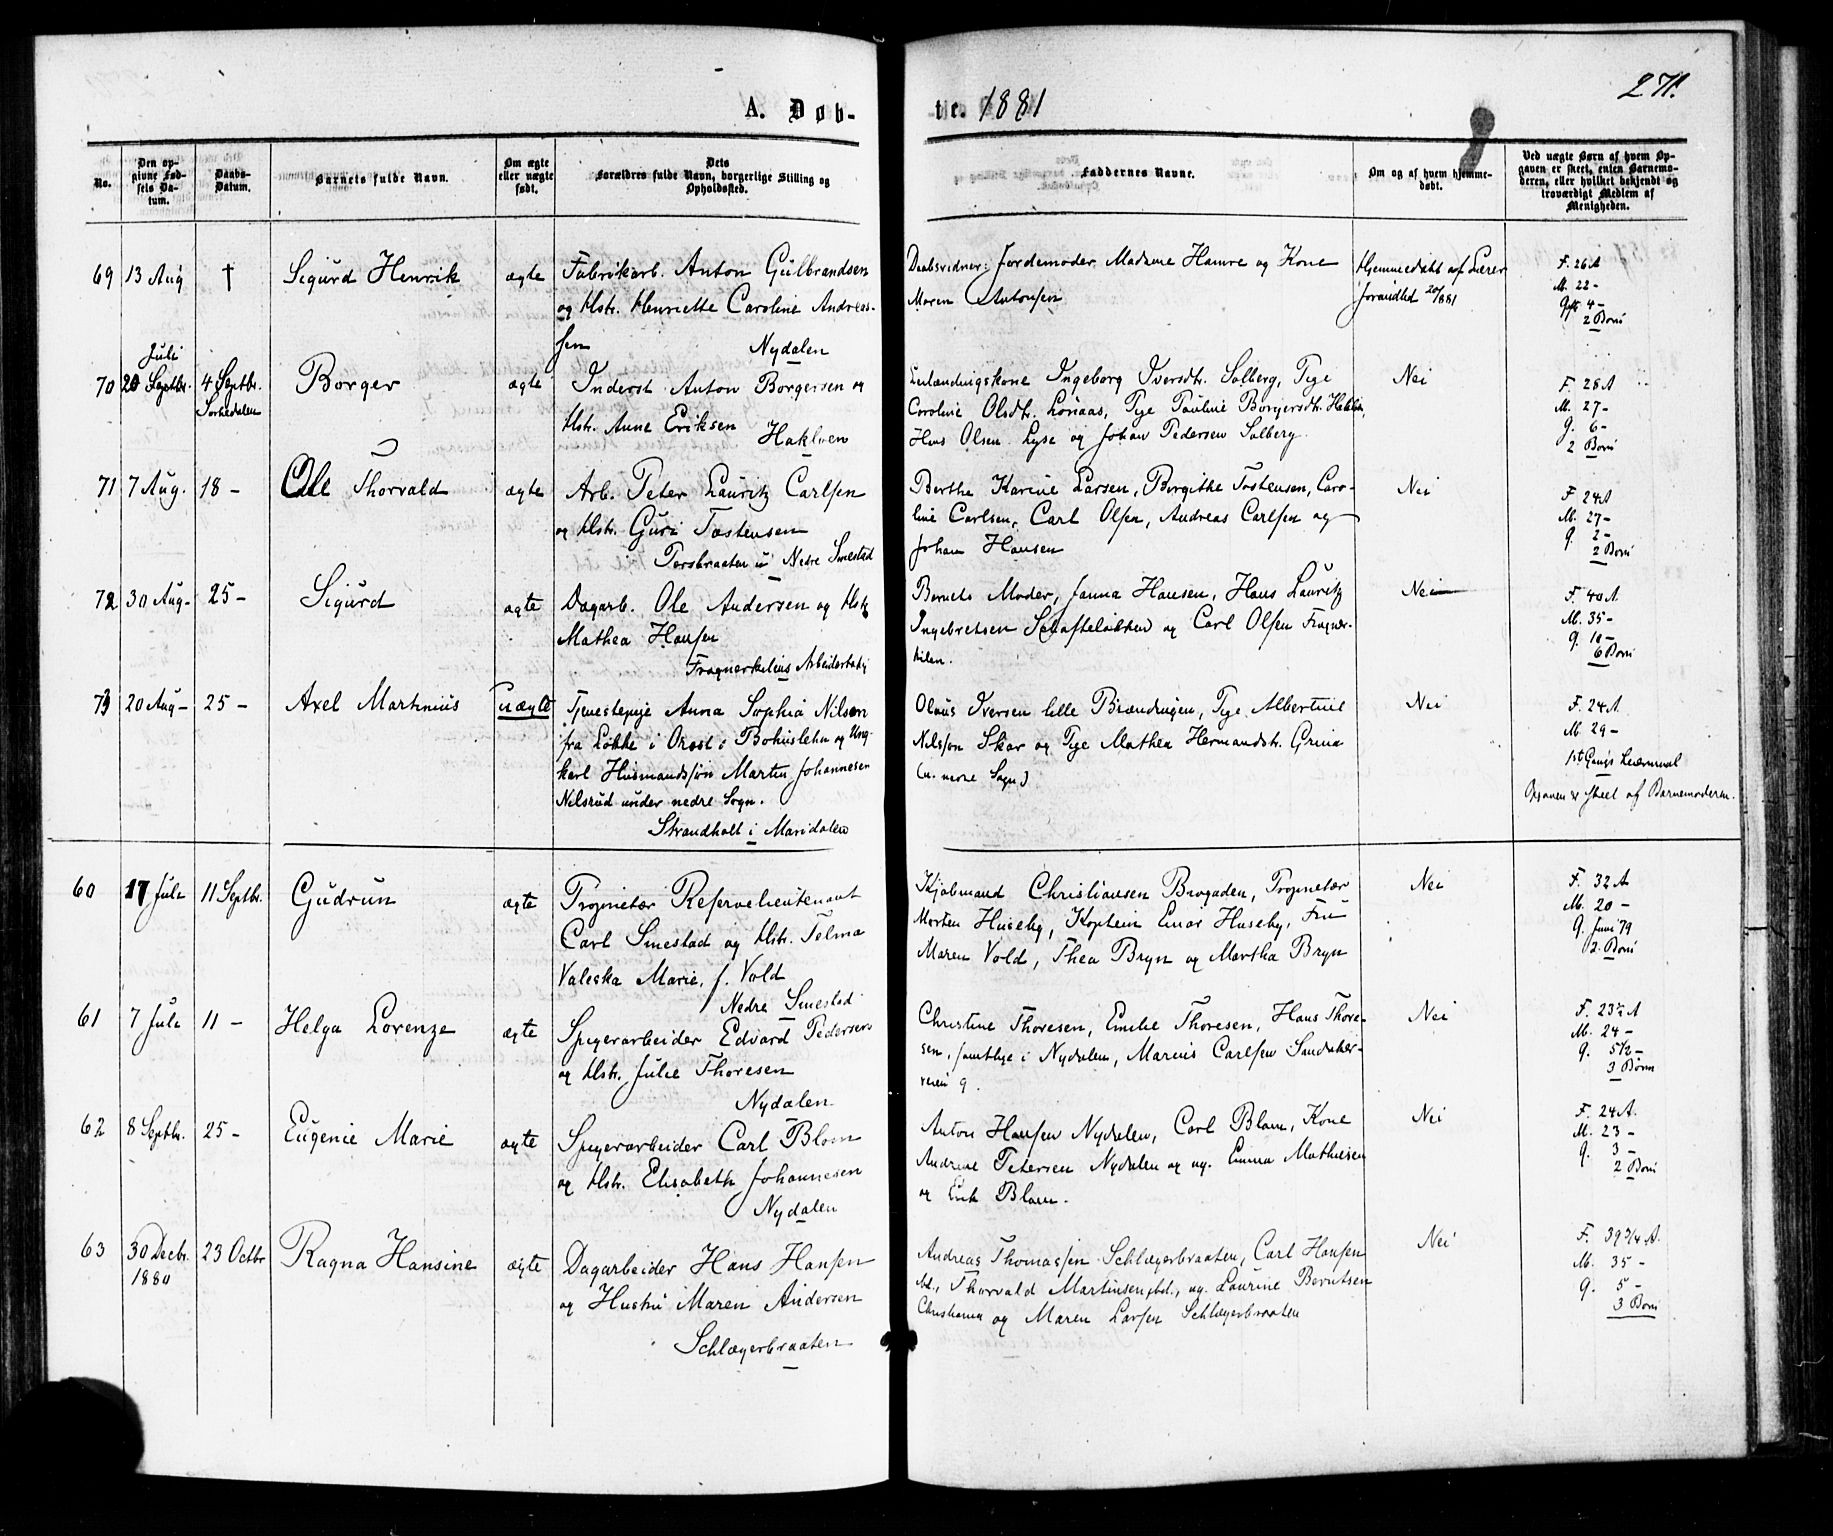 271.
A. Døb-
te. 1881
No.
Den op-
givne Fød-
sels Da-
tum.
Daabs-
Datum.
Barnets fulde Navn.
Om ægte
eller uægte
født.
Dets
Forældres fulde Navn, borgerlige Stilling og
Opholdssted.
Faddernes Navne.
Om og af hvem hjemme-
døbt.
Ved uægte Børn af hvem Op-
gaven er skeet, enten Barnemo-
deren, eller hvilket bekjendt og
troværdigt Medlem af
Menigheden.
69 13 Aug † Sigurd Henrik ægte Fabrikarb. Anton Gulbrandsen
og Hstr. Henriette Caroline Andreas-
sen Nydalen
Daabsvidner: Jordemoder Madame Hamre og Kone
Maren Antonsen
Hjemmedøbt af Lærer
20/8 81
F. 26 A
M. 22 -
Gft 4 -
2 Børn
Juli
70 20 Septbr. 4 Septbr. Borger ægte Inderst Anton Borgersen og
Sørkedalen
Hstr. Anne Eriksen
Hakloen
Ingeborg Iversdtr. Solberg, Pige
Caroline Olsdtr. Lønaas, Pige Pauline Borgersdtr. Hakloen,
Hans Olsen Lyse og Johan Pedersen Solberg.
Nei
F. 28 A
M. 27 -
G. 6 -
2 Børn
71 7 Aug. 18 - Ole Thorvald ægte Arb. Peter Lauritz Carlsen
og Hstr. Guri Tostensen
u. Nedre Smestad
Berthe Karine Larsen, Birgithe Tostensen, Caro-
line Carlsen, Carl Olsen, Andreas Carlsen og
Johan Hansen
Nei
F. 24 A
M. 27 -
G. 2 -
2 Børn
72 30 Aug - 25 - Sigurd ægte Dagarb. Ole Andersen og Hstr
Mathea Hansen
Frognerkilens Arbeiderbolig
Barnets Moder, Janna Hansen, Hans Lauritz
Ingebretsen Schafteløkken og Carl Olsen Frogner-
kilen.
Nei
F. 40 A.
M. 35 -
G. 10 -
6 Børn
73 20 Aug - 25 - Axel Martinius uægte Tjenestepige Anna Sophia Nilsen
fra Løkke i Orost i Bohuslehn og Ung-
karl Husmandssøn Martin Johannesen
Nilsrud under nedre Sogn.
Strandholt i Maridalen
Olaus Iversen lille Brændingen, Pige Albertine
Nilsson Skar og Pige Mathea Hermandstr. Grina
(u. nedre Sogn)
Nei
F. 24 A
M. 29 -
1st Gangs Leiermaal
Opgaven er skeet af Barnemoderen.
60 17 Juli 11 Septbr. Gudrun ægte Proprietær Reservelieutenant
Carl Smestad og Hstr. Telma
Valeska Marie, f. Vold
Nedre Smestad
Kjøbmand Christiansen Brogaden, Proprietær
Morten Huseby, Kaptein Einar Huseby, Fru
Maren Vold, Thea Bryn og Martha Bryn
Nei
F. 32 A
M. 20 -
G. Juni 79
2 Børn
61 7 Juli 11 - Helga Lorenze ægte Spigerarbeider Edvard Pedersen
og Hstr. Julie Thoresen
Nydalen
Christine Thoresen, Emilie Thoresen, Hans Thore-
sen, samtlige i Nydalen, Marius Carlsen Sandaker-
veien 9.
Nei
F. 23½ A
M. 24 -
G. 5½ -
3 Børn
62 8 Septbr. 25 - Eugenie Marie ægte Spigerarbeider Carl Blom
og Hstr. Elisabeth Johannesen
Nydalen
Anton Hansen Nydalen, Carl Blom, Kone
Andrine Petersen Nydalen og ug. Emma Mathiesen
og Erik Blom.
Nei
F. 24 A.
M. 23 -
G. 3 -
2 Børn
63 30 Decbr. 23 Octbr Ragna Hansine ægte Dagarbeider Hans Hansen
1880
og Hustru Maren Andersen
Schlægerbraaten
Andreas Thomassen Schlægerbraaten, Carl Hansen
Thorvald Martinsen, ug. Laurine Berntsen
Christiania og Maren Larsen Schlægerbraaten
Nei
F. 39 3/4 A.
M. 35 -
G. 5 -
3 Børn